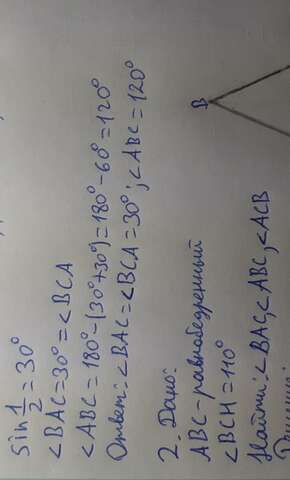 sin 1/2 = 30°
∠BAC=30°=∠BCA
∠ABC=180°-(30°+30°)=180°-60°=120°
Ответ: ∠BAC=∠BCA=30°; ∠ABC=120°
2. Дано:
ABC-равнобедренный
∠BCH=110°
Найти: ∠BAC, ∠ABC, ∠ACB
B